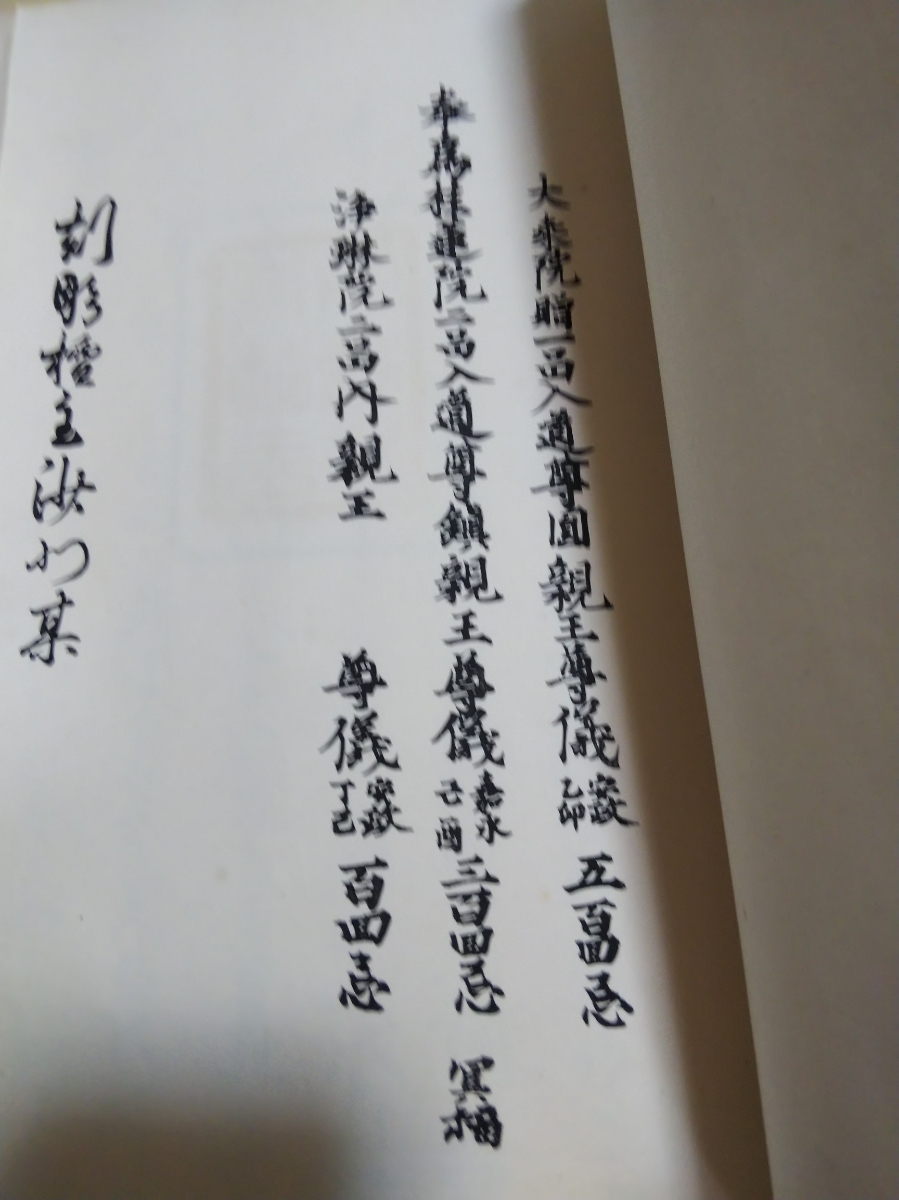 大乗院贈一品入道尊圓親王尊儀 安政乙卯 五百回忌
奉為桂蓮院二品入道尊鎮親王尊儀 嘉永己酉 三百回忌 冥福
浄琳院二品内親王 尊儀 安政丁巳 百回忌
刻彫檀主 某